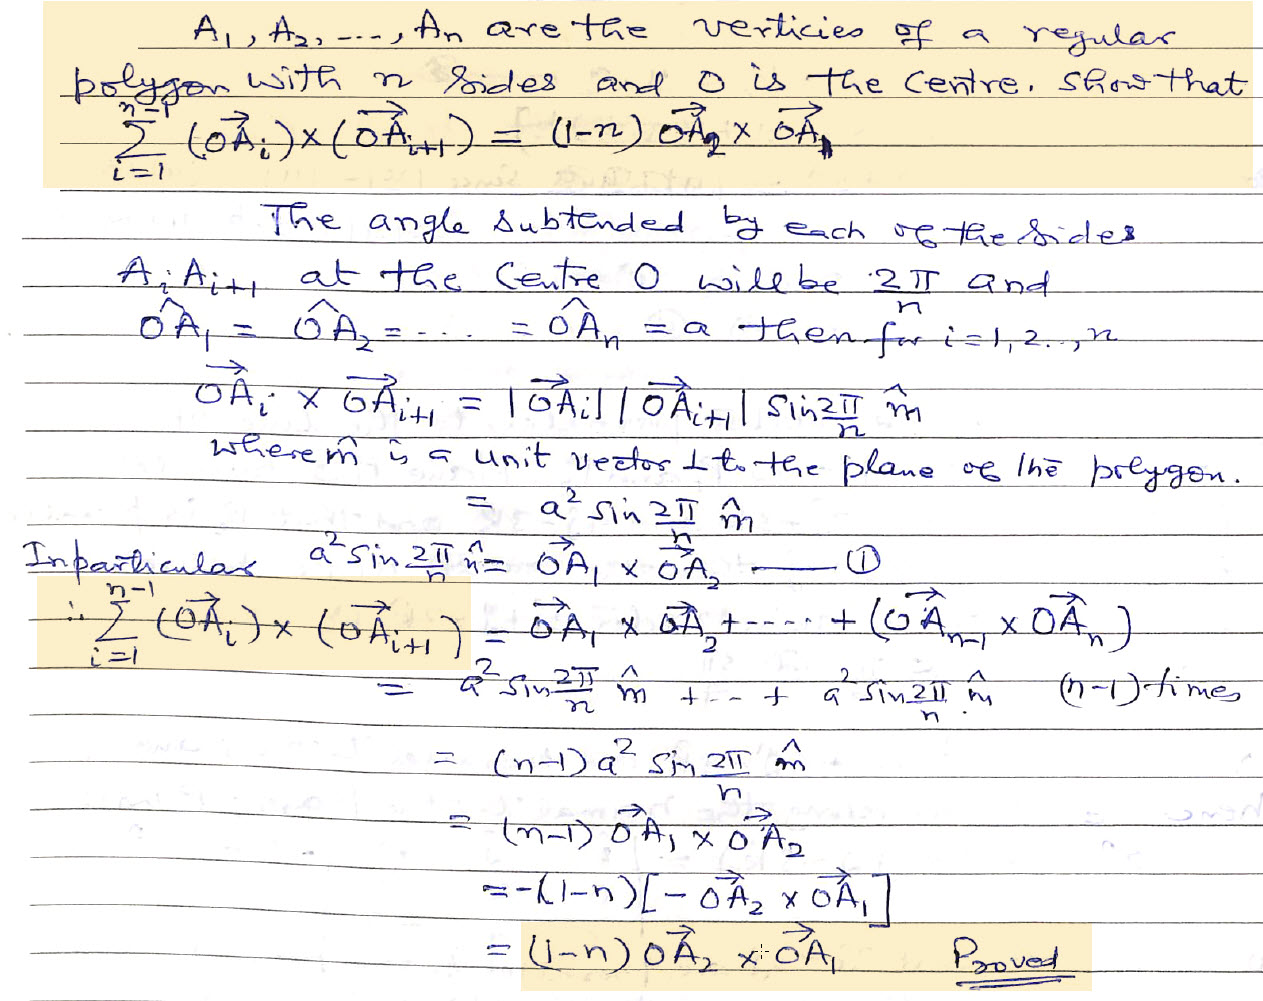 A₁, A₂, ..., Aₙ are the verticies of a regular
polygon with n sides and O is the centre. Show that
∑_{i=1}^{n-1} (OA⃗ᵢ) × (OA⃗ᵢ₊₁) = (1-n) OA⃗₂ × OA⃗₁
The angle subtended by each of the sides
AᵢAᵢ₊₁ at the centre O will be 2π/n and
OÂ₁ = OÂ₂ = .... = OÂₙ = a then for i=1,2..,n
OA⃗ᵢ × OA⃗ᵢ₊₁ = |OA⃗ᵢ| |OA⃗ᵢ₊₁| Sin 2π/n m̂
where m̂ is a unit vector ⊥ to the plane of the polygon.
= a² Sin 2π/n m̂
In particular a² Sin 2π/n n̂ = OA⃗₁ × OA⃗₂ —— ①
∴ ∑_{i=1}^{n-1} (OA⃗ᵢ) × (OA⃗ᵢ₊₁) = OA⃗₁ × OA⃗₂ + ..... + (OA⃗ₙ₋₁ × OA⃗ₙ)
= a² Sin 2π/n m̂ + .. + a² Sin 2π/n m̂ (n-1) times
= (n-1) a² Sin 2π/n m̂
= (n-1) OA⃗₁ × OA⃗₂
= -(1-n) [- OA⃗₂ × OA⃗₁]
= (1-n) OA⃗₂ × OA⃗₁ Proved